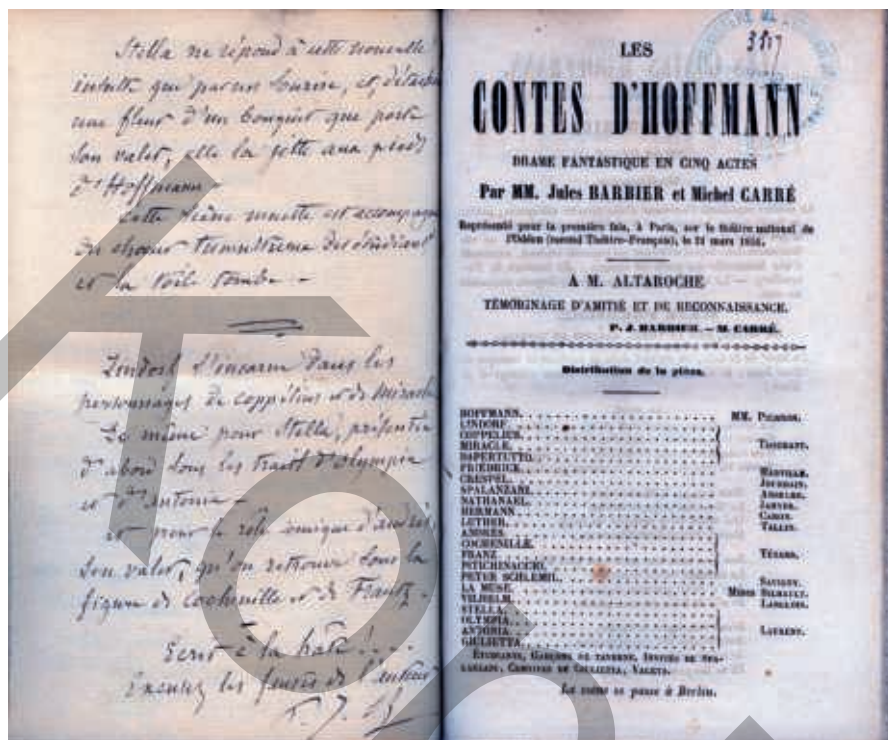 Stella ne répond à cette nouvelle
insulte que par un sourire, et, détachant
une fleur d'un bouquet que porte
son valet, elle la jette aux pieds
d'Hoffmann -
Cette scène muette est accompagnée
du chœur tumultueux des étudiants
et la toile tombe -
Lindorf s'incarne dans les
personnages de Coppélius et de Miracle
De même pour Stella, présentée
d'abord sous les traits d'Olympia
et d'Antonia -
et pour le rôle comique d'Andrès,
son valet, qu'on retrouve sous la
figure de Cochenille et de Frantz -
Ecrit à la hâte! ...
Excusez les fautes de l'auteur
3517
LES
CONTES D'HOFFMANN
DRAME FANTASTIQUE EN CINQ ACTES
Par MM. Jules BARBIER et Michel CARRÉ
Représenté pour la première fois, à Paris, sur le théâtre national de
l'Odéon (second Théâtre-Français), le 21 mars 1851.
A M. ALTAROCHE
TÉMOIGNAGE D'AMITIÉ ET DE RECONNAISSANCE.
P. J. BARBIER. — M. CARRÉ.
Distribution de la pièce.
HOFFMANN. MM. 
LINDORF.
COPPÉLIUS.
MIRACLE. TISSERANT.
DAPERTUTTO.
FRIEDRICK.
CRESPEL.
SPALANZANI.
NATHANAEL.
HERMANN
LUTHER.
ANDRÈS.
COCHENILLE.
FRANZ TÉTARD.
PITICHINACCIO.
PETER SCHLEMIL.
LA MUSE. Mmes
WILHELM.
STELLA.
OLYMPIA.
ANTONIA. LAURENT.
GIULIETTA.
ÉTUDIANTS, GARÇONS DE TAVERNE, INVITÉS DE SPA-
LANZANI, CONVIVES DE GIULIETTA, VALETS.
La scène se passe à Berlin.